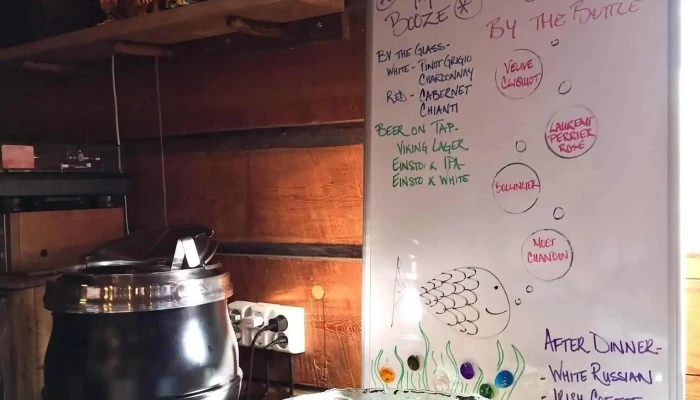 BOOZE
BY THE GLASS-
WHITE - PINOT GRIGIO
CHARDONNAY
RED - CABERNET
CHIANTI
BEER ON TAP-
VIKING LAGER
EINSTOK IPA
EINSTOK WHITE
BY THE BOTTLE
VEUVE
CLIQUOT
LAURENT
PERRIER
ROSE
BOLLINGER
MOET
CHANDIN
AFTER DINNER-
- WHITE RUSSIAN
- IRISH COFFEE